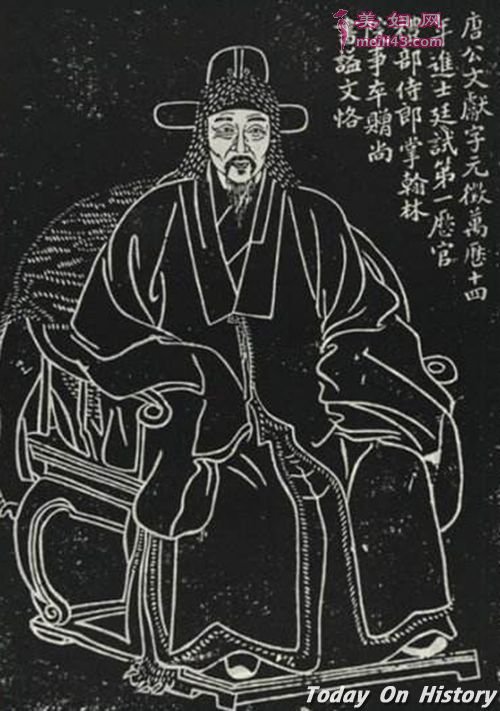 美妇网
唐公文獻字元徵萬厯十四
年進士廷試第一厯官
禮部侍郎掌翰林
院事卒贈尚
書謚文恪
Today On History